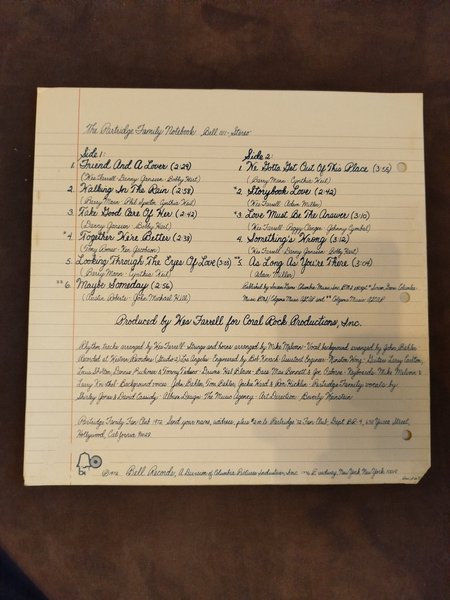 The Partridge Family Notebook Bell 1111 - Stereo
Side 1:
1. Friend And A Lover (2:29)
(Wes Farrell - Danny Janssen - Bobby Hart)
2. Walking In The Rain (2:58)
(Barry Mann - Phil Spector - Cynthia Weil)
3. Take Good Care Of Her (2:42)
(Danny Janssen - Bobby Hart)
*4. Together We're Better (2:38)
(Tony Romeo - Ken Jacobson)
5. Looking Through The Eyes Of Love (3:03)
(Barry Mann - Cynthia Weil)
**6. Maybe Someday (2:56)
(Austin Roberts - John Michael Hill)
Side 2:
1. We Gotta Get Out Of This Place (3:55)
(Barry Mann - Cynthia Weil)
*2. Storybook Love (2:42)
(Wes Farrell - Adam Miller)
*3. Love Must Be The Answer (3:10)
(Wes Farrell - Peggy Clinger - Johnny Cymbal)
4. Something's Wrong (3:12)
(Wes Farrell - Danny Janssen - Bobby Hart)
**5. As Long As You're There (3:04)
(Adam Miller)
Published by Screen Gems-Columbia Music, Inc. BMI except * Screen Gems-Columbia
Music BMI/Colgems Music ASCAP and ** Colgems Music ASCAP
Produced by Wes Farrell for Coral Rock Productions, Inc.
Rhythm tracks arranged by Wes Farrell - Strings and horns arranged by Mike Melvoin - Vocal background arranged by John Bahler
Recorded at Western Recorders (Studio 2) Los Angeles - Engineered by Bob Kovach Assistant Engineer - Winston Wong - Guitars Larry Carlton,
Louis Shelton, Dennis Budimir & Tommy Tedesco - Drums Hal Blaine - Bass Max Bennett & Joe Osborn - Keyboards Mike Melvoin &
Larry Knechtel - Background voices John Bahler, Tom Bahler, Jackie Ward & Ron Hicklin - Partridge Family vocals by
Shirley Jones & David Cassidy - Album Design: The Music Agency - Art Direction: Beverly Weinstein
Partridge Family Fan Club 1972 Send your name, address, plus to Partridge '72 Fan Club, Dept. 9, Yucca Street,
Hollywood, California 90028
©1972 Bell Records, A Division of Columbia Pictures Industries, Inc. New York, New York 10019